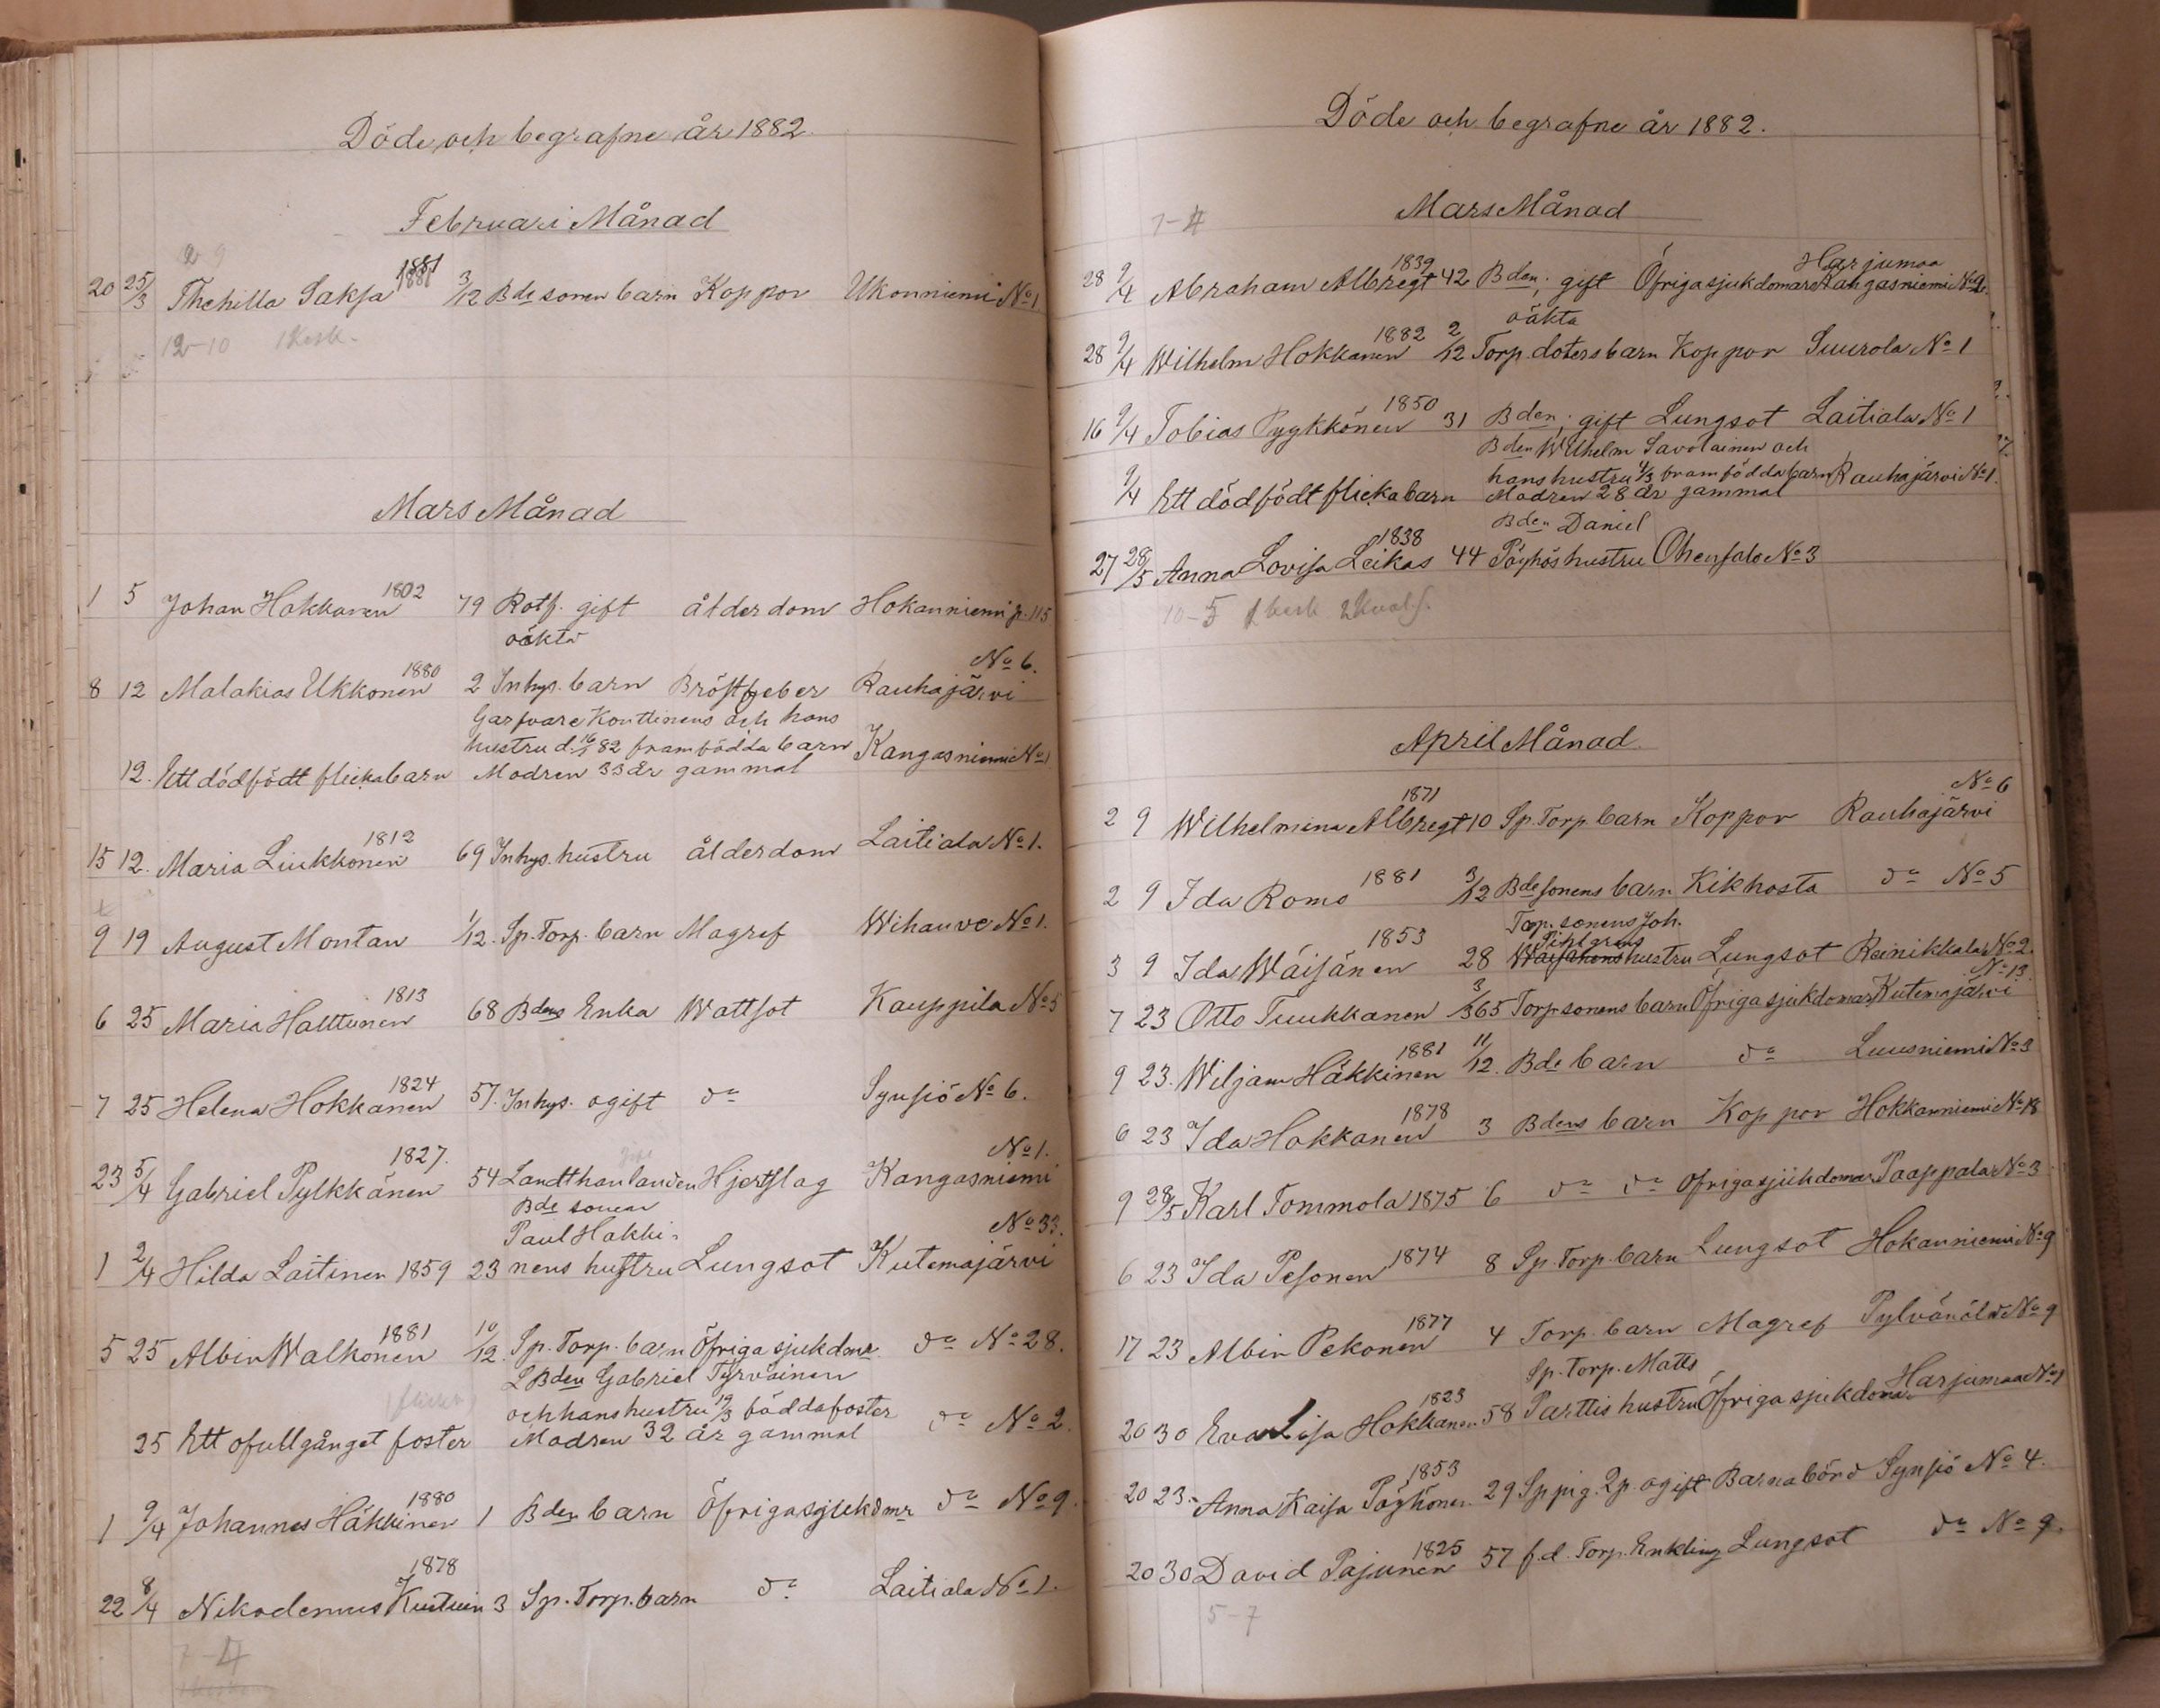 Döde och begrafne år 1882.
Februari Månad
29
20 25/3 Thehilla Saksa 1881 3/12 Bde sonen barn Koppor Ukonniemi No 1.
12-10 1 kesk.
Mars Månad
1 5 Johan Hokkanen 1802 79 Rotf. gift ålderdom Hokanniemi p. 115
oäkta
8 12 Malakias Ukkonen 1880 2 Inhys. barn Bröstfeber Rauhajärvi No 6.
Garfvare Konttinens och hans
hustru d. 16/3 82 framfödda barn
12. Ett dödfödt flickabarn Modren 33 år gammal Kangasniemi No 1
15 12. Maria Liukkonen 1812 69 Inhys. hustru ålderdom Laitiala No 1.
9 19 August Montan 1/12. Sp. Torp. barn Magref Wihauve No 1.
6 25 Maria Halttunen 1813 68 Bdens Enka Wattsot Kauppila No 5
7 25 Helena Hokkanen 1824 57. Inhys. ogift do Synsiö No 6.
23 5/4 Gabriel Pylkkänen 1827. 54 Landthanlanden Hjertslag Kangasniemi No 1.
Bde sonen
Paul Hakki-
1 2/4 Hilda Laitinen 1859 23 nens hustru Lungsot Kutemajärvi No 33.
5 25 Albin Walkonen 1881 10/12. Sp. Torp. barn Öfriga sjukdmr. do No 28.
LBden Gabriel Tyrväinen
och hans hustru 19/3 födda foster
25 Ett ofullgånget foster Modren 32 år gammal do No 2.
1 9/4 Johannes Häkkinen 1880 1 Bden barn Öfriga sjukdmr do No 9.
22 8/4 Nikodemus Kuitunen 1878 3 Sp. Torp. barn do Laitiala No 1.
7-4
Döde och begrafne år 1882.
Mars Månad
7-4
28 9/4 Abraham Albregt 1839 42 Bden; gift Öfriga sjukdomar Harjumaa Kangasniemi No 2.
oäkta
28 9/4 Wilhelm Hokkanen 1882 2/12 Torp. doters barn Koppor Suurola No 1
16 9/4 Tobias Pygkkönen 1850 31 Bden; gift Lungsot Laitiala No 1
Bden Wilhelm Savolainen och
hans hustru 4/3 framfödda barn Rauhajärvi No 1.
9/4 Ett dödfödt flickabarn Modren 28 år gammal
Bden Daniel
27 28/5 Anna Lovisa Leikas 1838 44 Pöyhös hustru Ohensalo No 3
10-5
April Månad
2 9 Wilhelmina Albregt 1871 10 Sp. Torp barn Koppor Rauhajärvi No 6
2 9 Ida Roms 1881 3/12 Bde sonens barn Kikhosta do No 5
Torp. sonens Joh.
Pihlgrens
3 9 Ida Wäisänen 1853 28 Wäisänens hustru Lungsot Reinikkala No 2.
7 23 Otto Tuukkanen 3/365 Torp sonens barn Öfriga sjukdomar Kutemajärvi No 13.
9 23. Wiljam Häkkinen 1881 11/12. Bde barn do Luusniemi No 3
6 23 Ida Hokkanen 1878 3 Bdens barn Koppor Hokkanniemi No 18
9 28/5 Karl Tommola 1875 6 do do Öfriga sjukdomar Paappala No 3
6 23 Ida Pesonen 1874 8 Sp. Torp. barn Lungsot Hokanniemi No 9
17 23 Albin Pekonen 1877 4 Torp. barn Magref Pylvänälä No 9
Sp. Torp. Matts
20 30 Eva Lisa Hokkanen 1823 58 Parttis hustru Öfriga sjukdomar Harjumaa No 1
20 23. Anna Kaisa Pöyhönen 1853 29 Sp pig. 2p. ogift Barnabörd Synsiö No 4.
20 30 David Pajunen 1825 57 f.d. Torp. Enkling Lungsot do No 9.
5-7